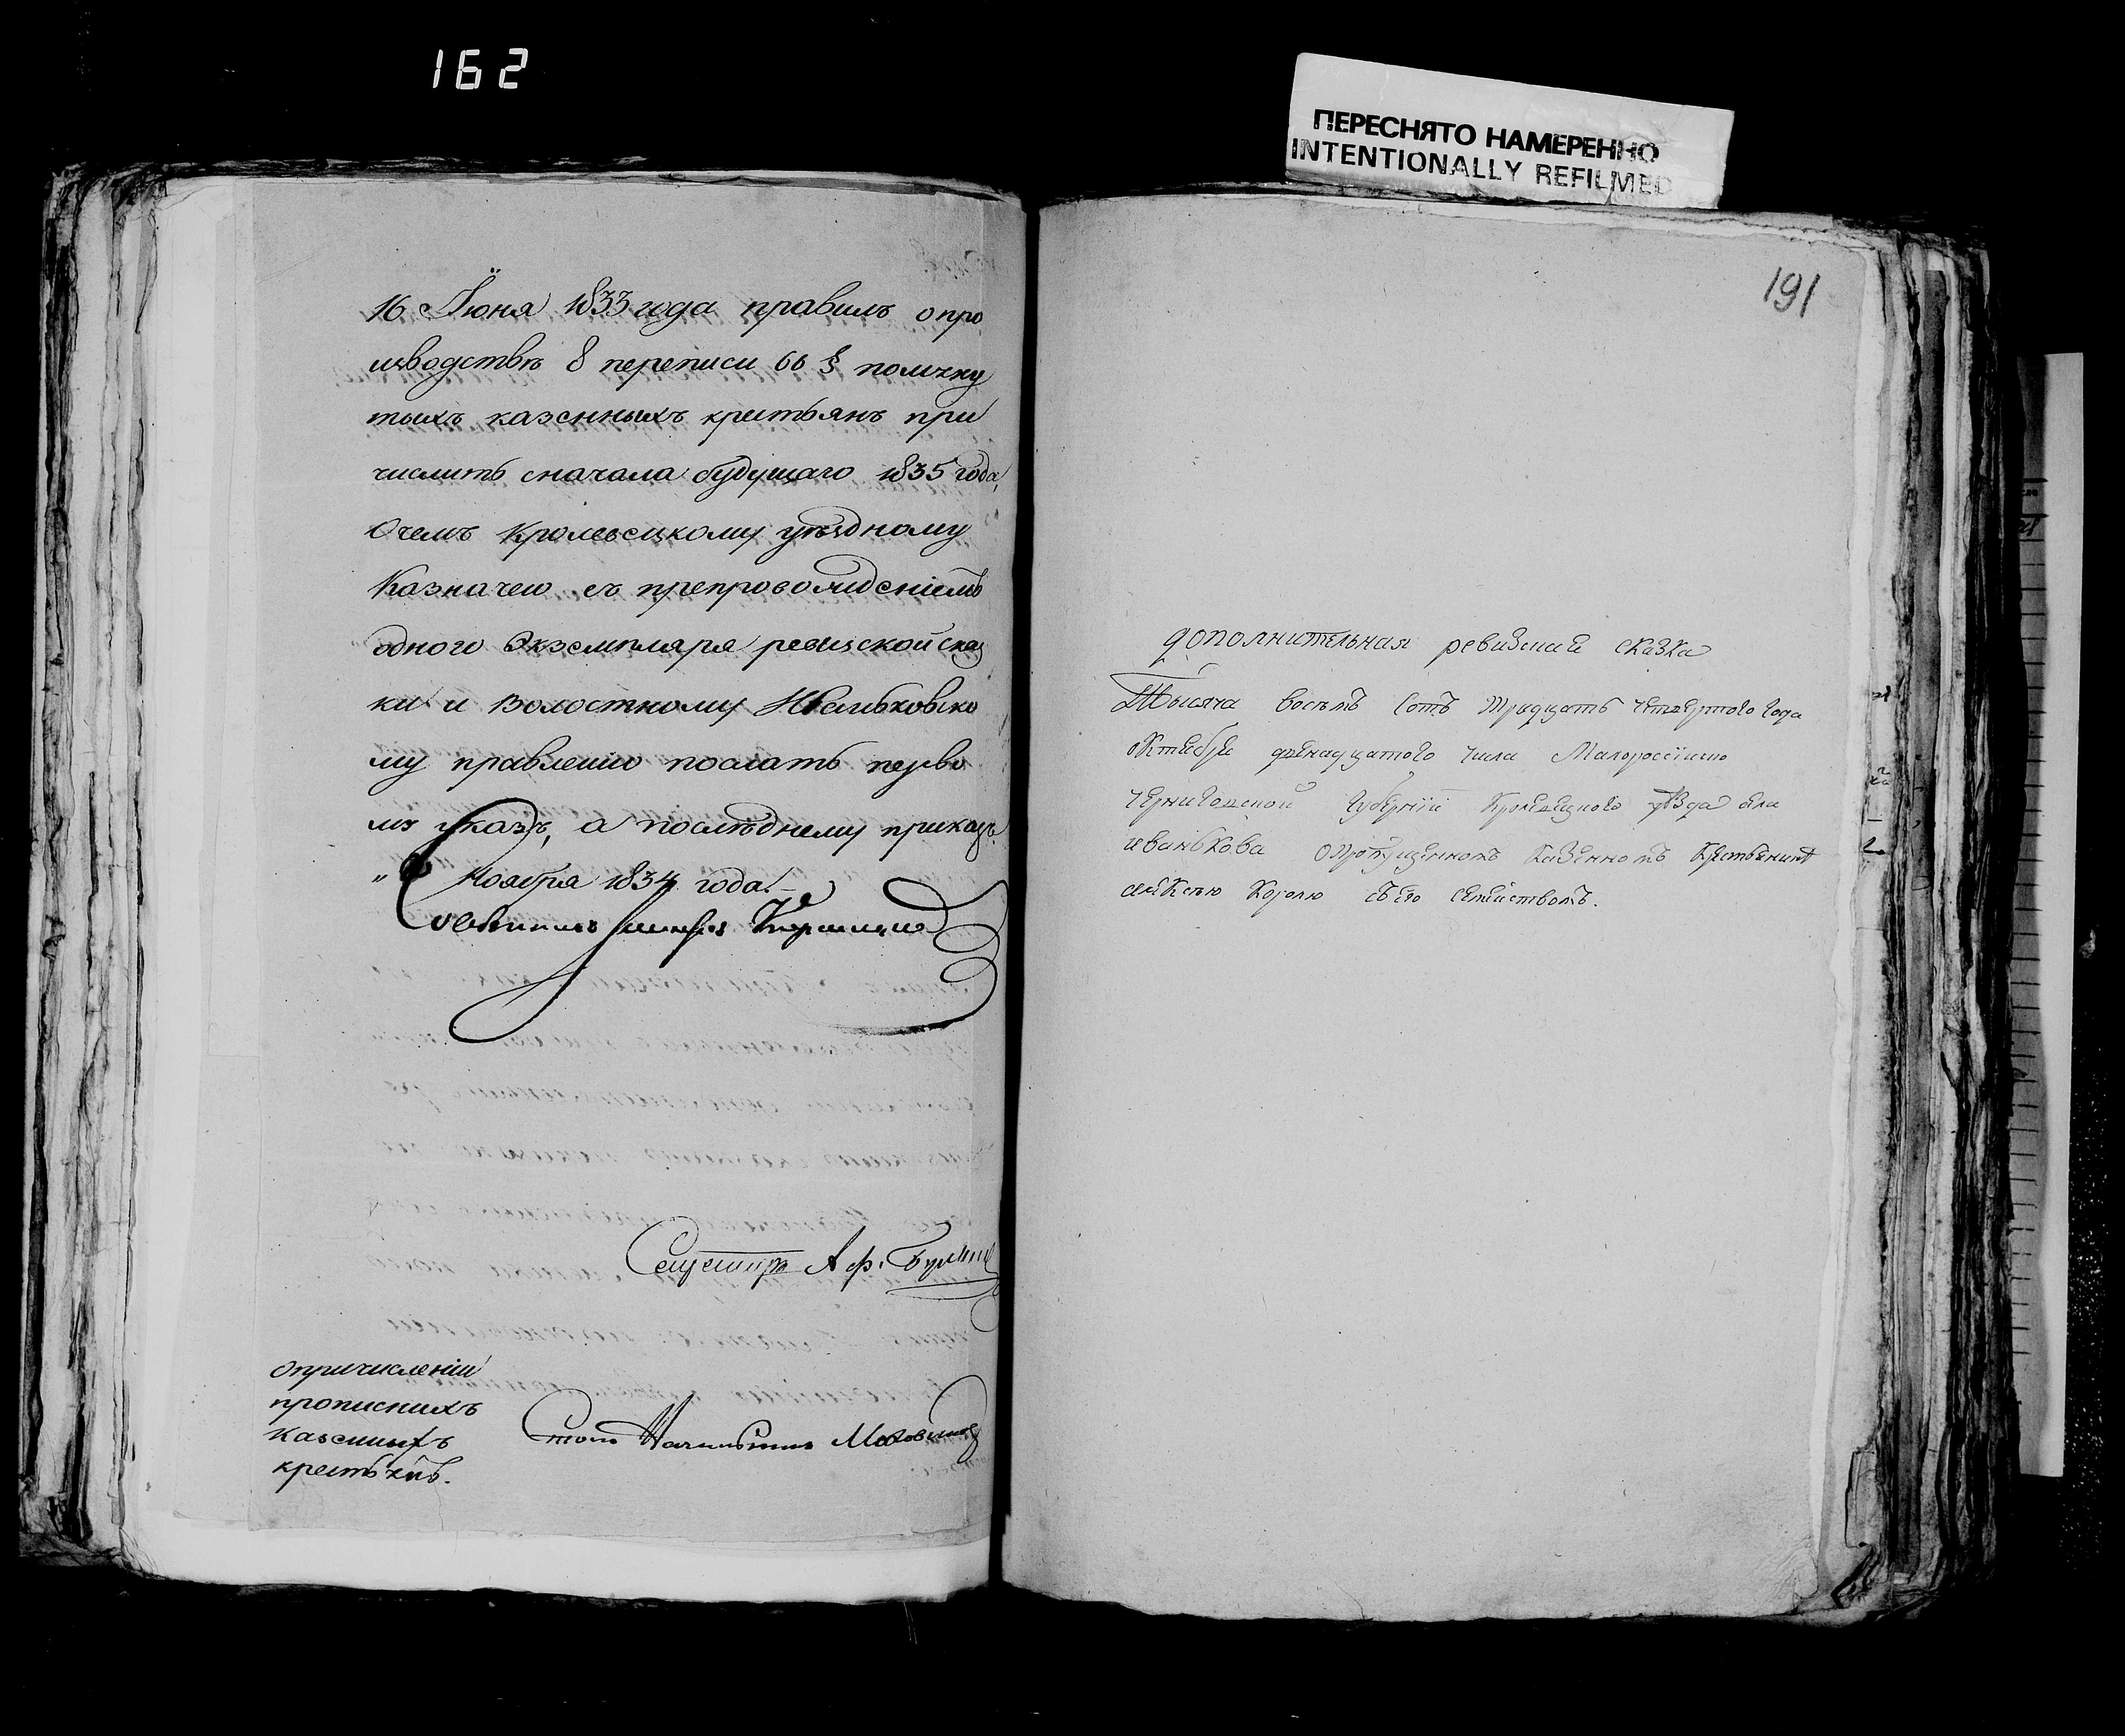 162
ПЕРЕСНЯТО НАМЕРЕННО
INTENTIONALLY REFILMED
16 Іюня 1833 года правилъ о про
изводствѣ 8 переписи 66 § помяну
тыхъ казенныхъ крестьянъ при
числить сначала будущаго 1835 года,
о чемъ Кролевецкому уѣздному
Казначею съ препровожденіемъ
одного Экземпляра ревизской сказ
ки и Волостному Ивоньковско
му правленію послать перво
му указъ, а послѣднему приказъ.
Ноября 1834 года.
Совѣтникъ
Аф.
Столо Начальникъ
опричисленіи
прописныхъ
казенныхъ
крестьянъ.
191
дополнительная ревизкая сказка
Тысяча восемъ сотъ тридцать четвертого года
октебре двенадцатого числа Малороссійско
черниговской губерніи кролевецкого уѣзда села
иванькова опропущенномъ казенномъ крестьянине
королю съ его семействомъ.